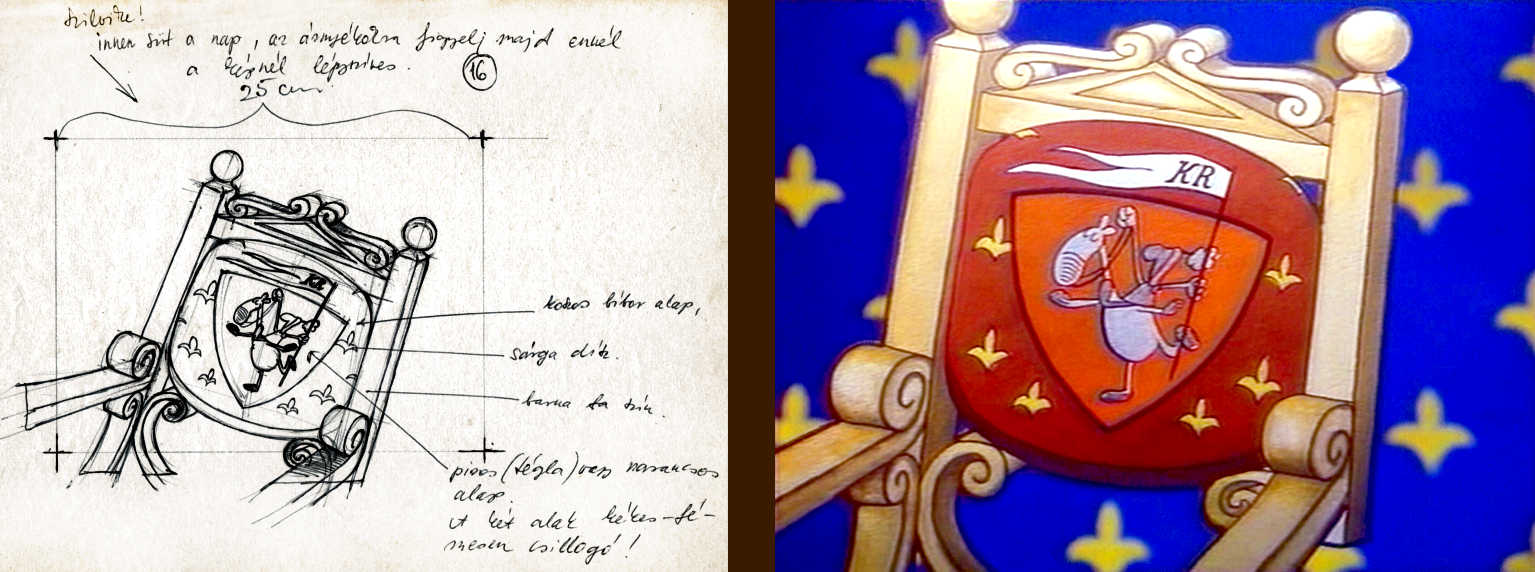 Szilvike!
innen süt a nap, az árnyékolásra figyelj majd ennél
a képnél légyszíves.
16
25 cm
KR
bíbor alap,
sárga dísz.
barna fa szín.
piros (tégla) vagy narancsos
alap.
itt két alak kékes-fé-
mesen csillogó!
KR